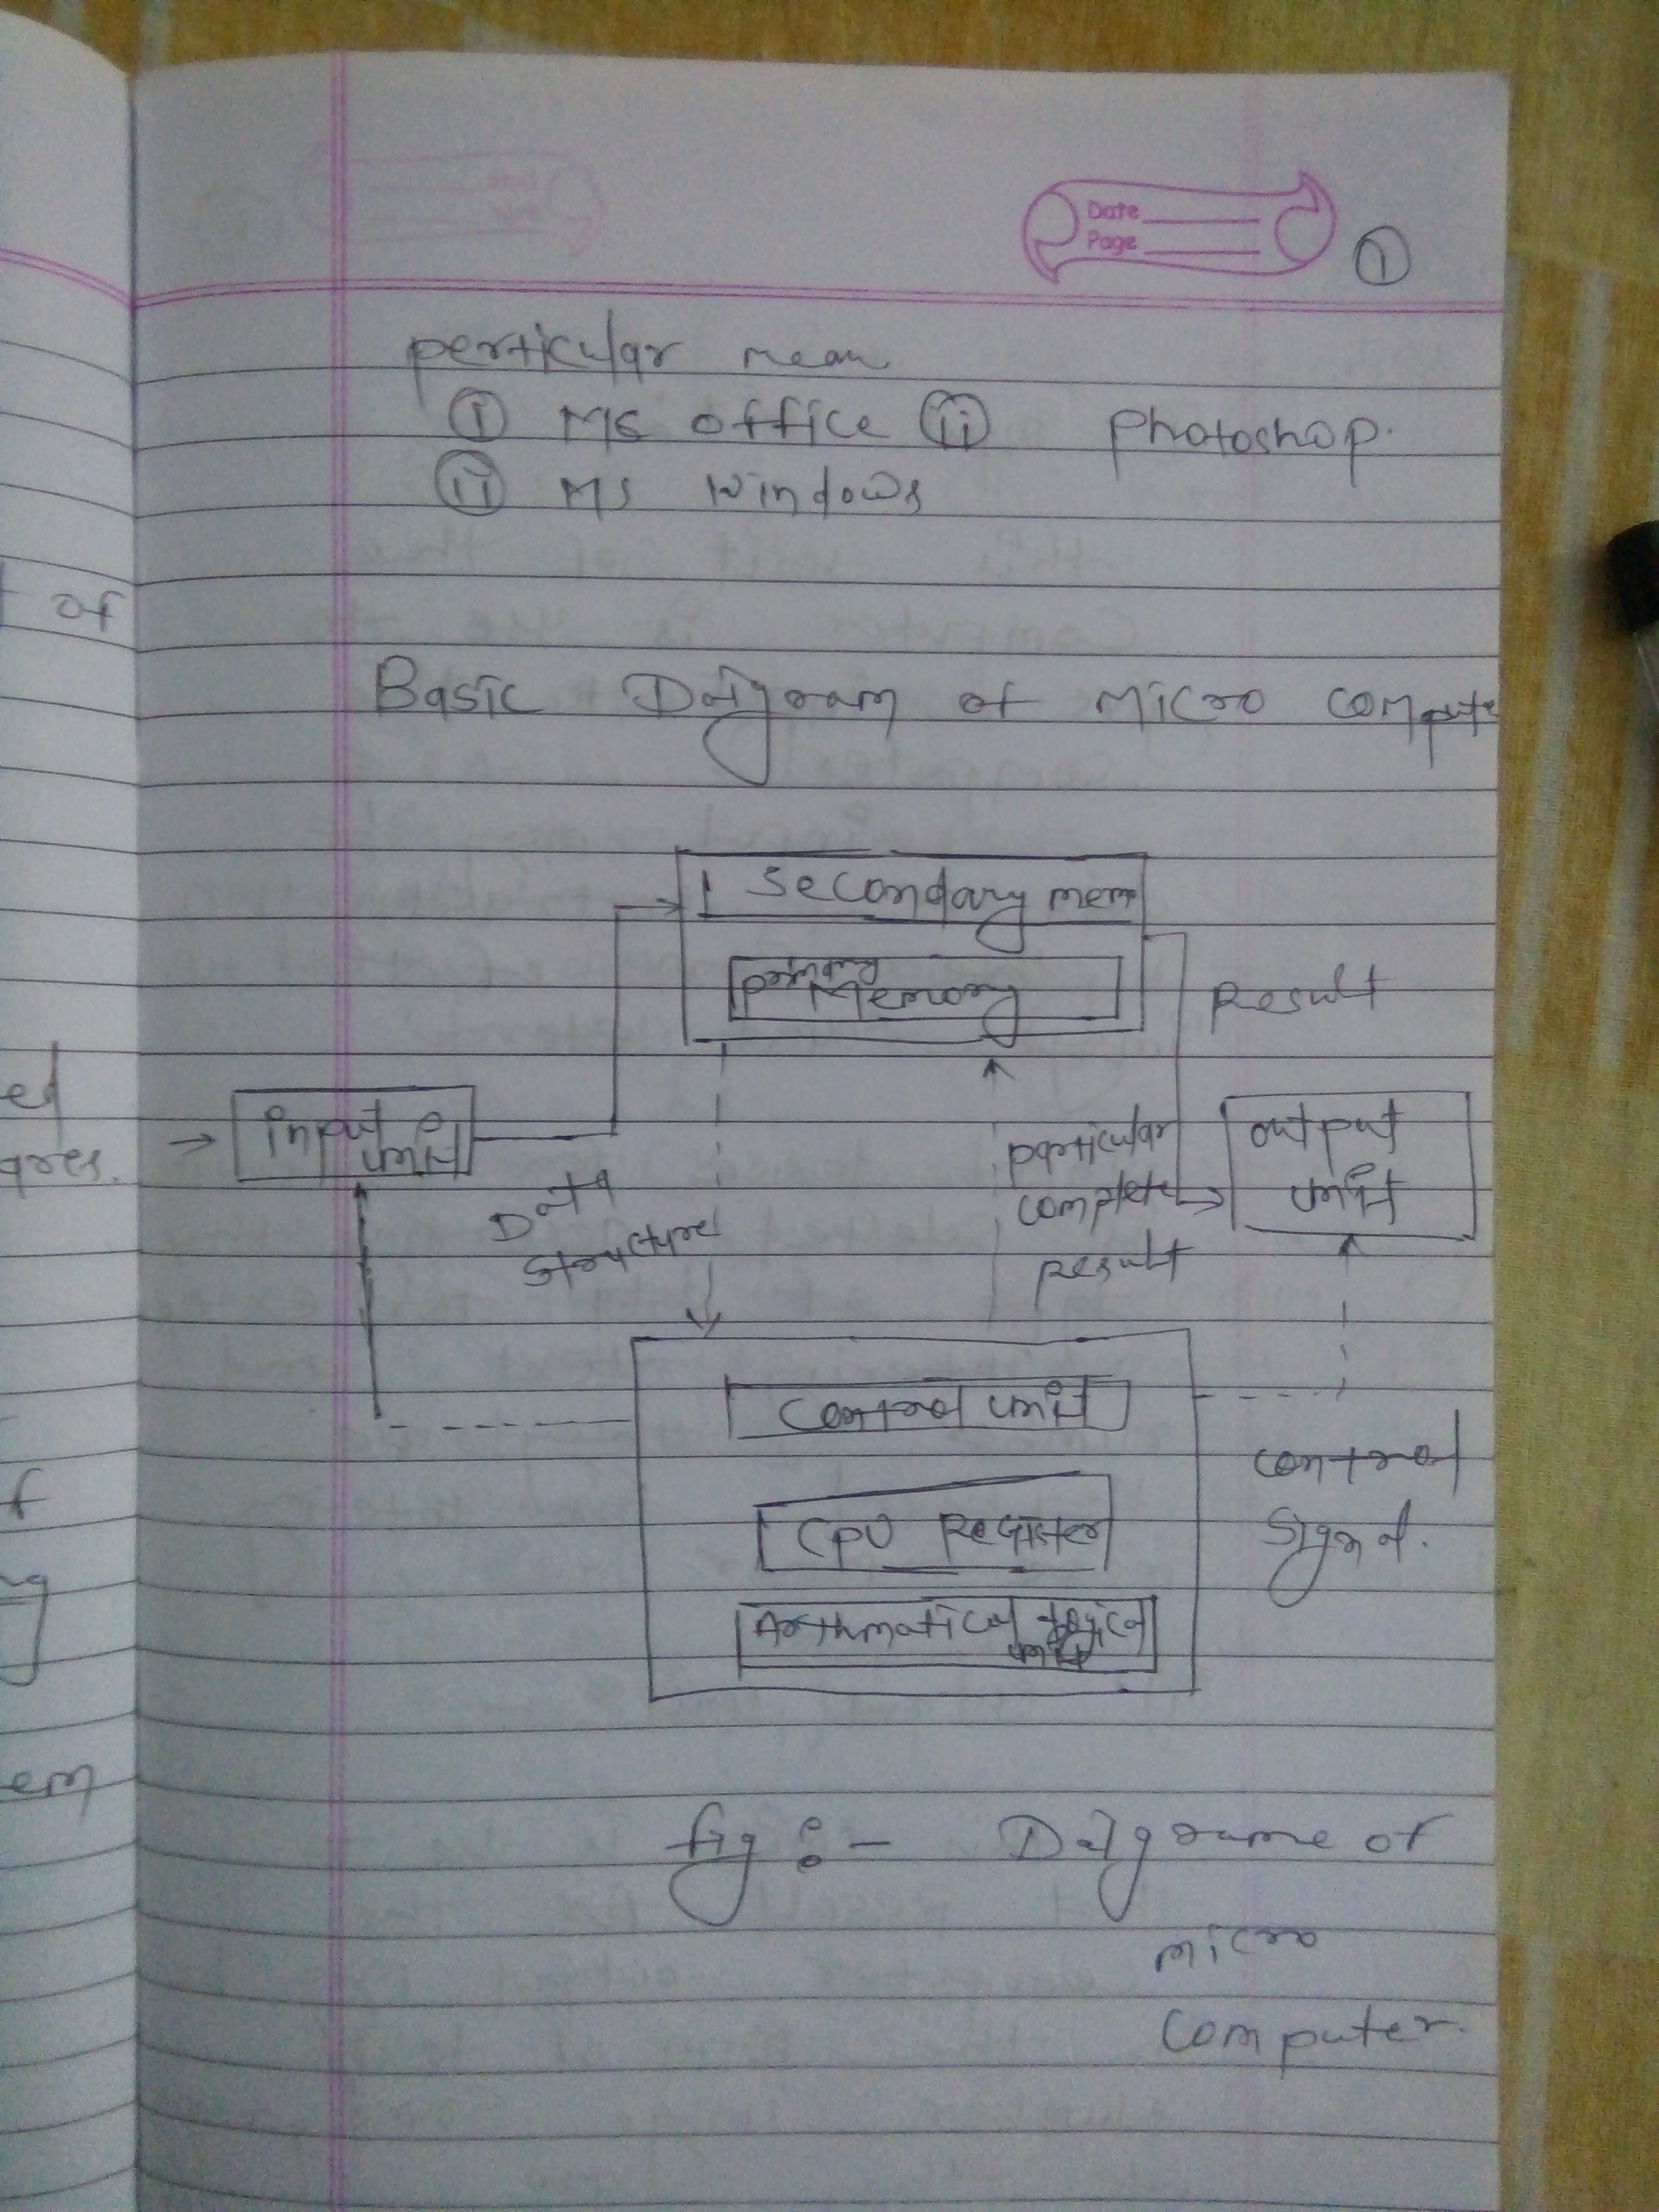 Date
Page
①
perticular mean
ⓘ MS office ⓘⓘ Photoshop.
ⓘⓘ MS Windows
of
Basic Daigram of Micro compute
Secondary mem
primary
Memory
Result
ed
ares.
input
unit
output
unit
particular
complete
result
Data
structure
control unit
CPU Register
Arthmatical logical
unit
control
Signal.
f
ng
em
fig :- Daigrame of
micro
computer.